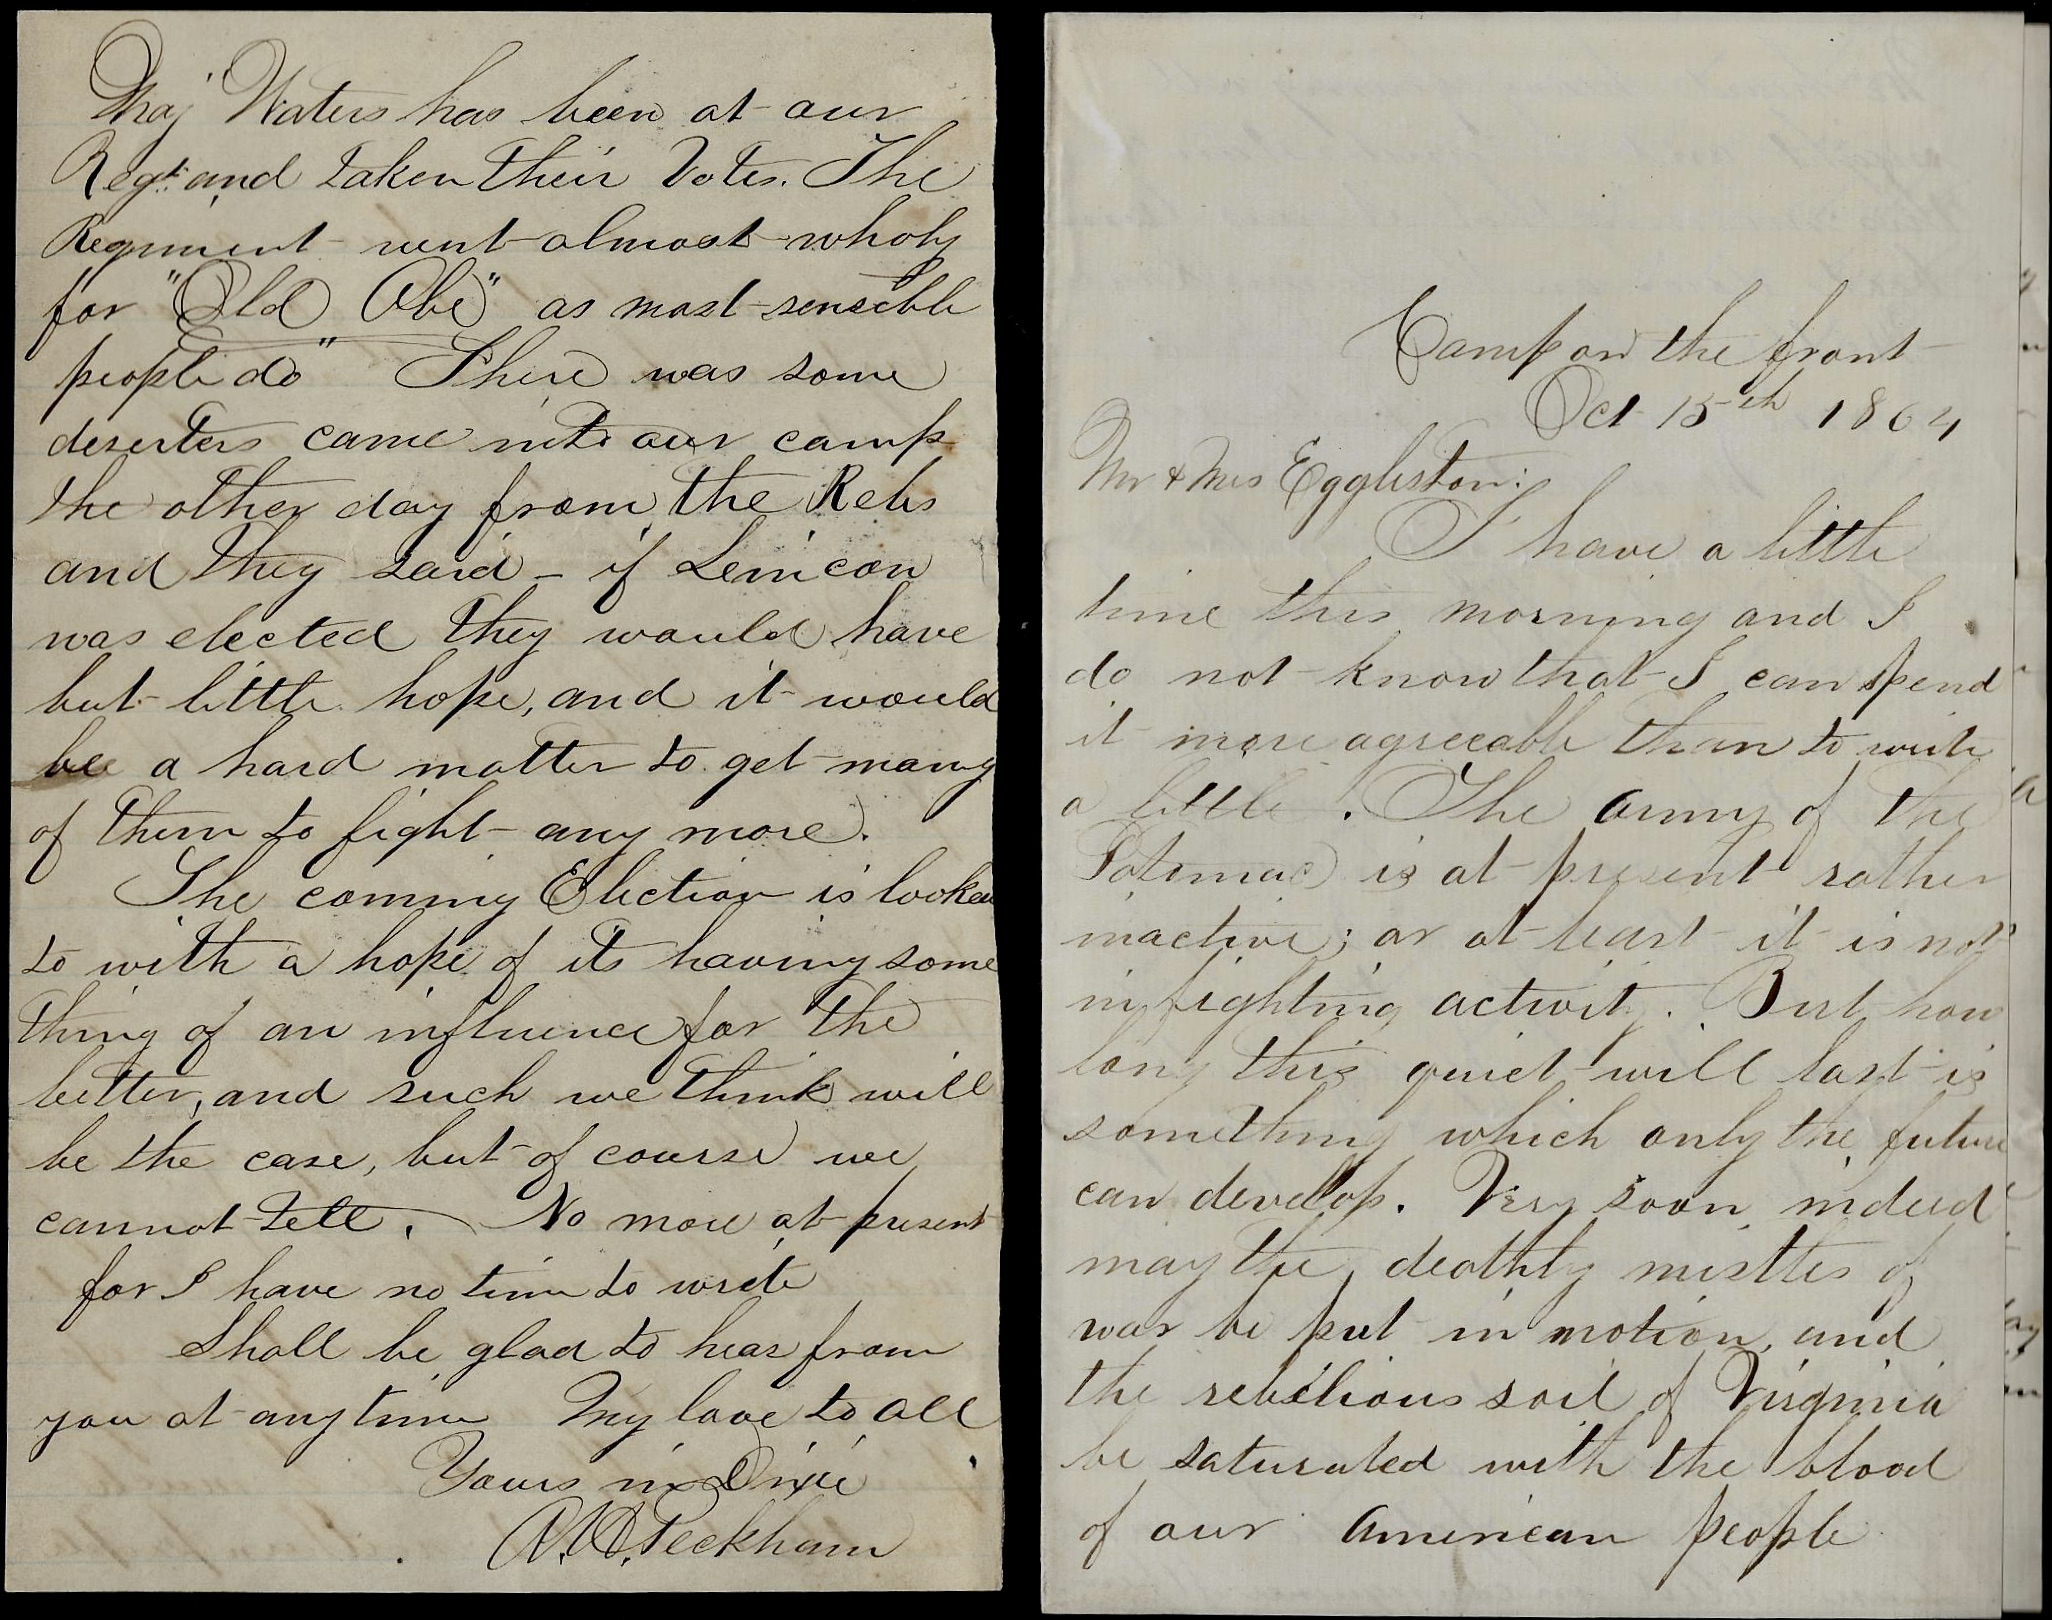 Maj Waters has been at our
Regt. and taken their Votes. The
Regiment went almost wholy
for "Old Abe" as most sensible
people do" There was some
deserters came into our camp
the other day from the Rebs
and they said - if Lenicon
was elected they would have
but little hope, and it would
be a hard matter to get many
of them to fight any more.
The coming Election is looked
to with a hope of its having some
thing of an influence for the
better, and such we think will
be the case, but of course we
cannot tell. No more at present
for I have no time to write
Shall be glad to hear from
you at any time My love to all
Yours in Dixie
A. D. Peckham
Camp on the front
Oct 15th 1864
Mr & Mrs Eggleston:
I have a little
time this morning and I
do not know that I can spend
it more agreeable than to write
a little. The army of the
Potomac is at present rather
inactive; or at least it is not
in fighting activity. But how
long this quiet will last is
something which only the future
can develop. Very soon indeed
may the deathly misttes of
war be put in motion, and
the rebelious soil of Virginia
be saturated with the blood
of our American people